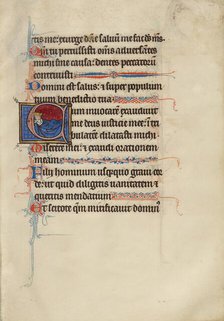 ctis me: exurge domine salvum me fac deus ms.
uia tu percussisti omnes adversantes
michi sine causa: dentes peccatorum
contrivisti
Domini est salus: & super populum
tuum benedictio tua
um invocarem exaudivit
me deus iusticie mee: in tri
bulatione dilatasti michi
iserere mei: & exaudi orationem
meam
Filij hominum usquequo gravi cor
de: ut quid diligitis vanitatem &
queritis mendatium
Et scitote quoniam mirificavit dominus